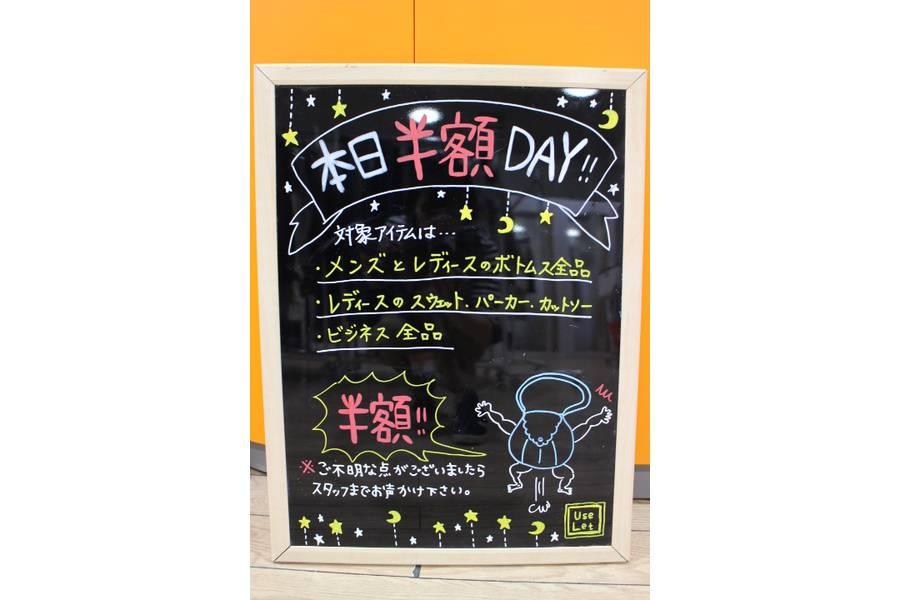 本日半額DAY!!
対象アイテムは…
・メンズとレディースのボトムス全品
・レディースのスウェット・パーカー・カットソー
・ビジネス全品
半額!!
※ご不明な点がございましたら
スタッフまでお声かけ下さい。
Use
Let